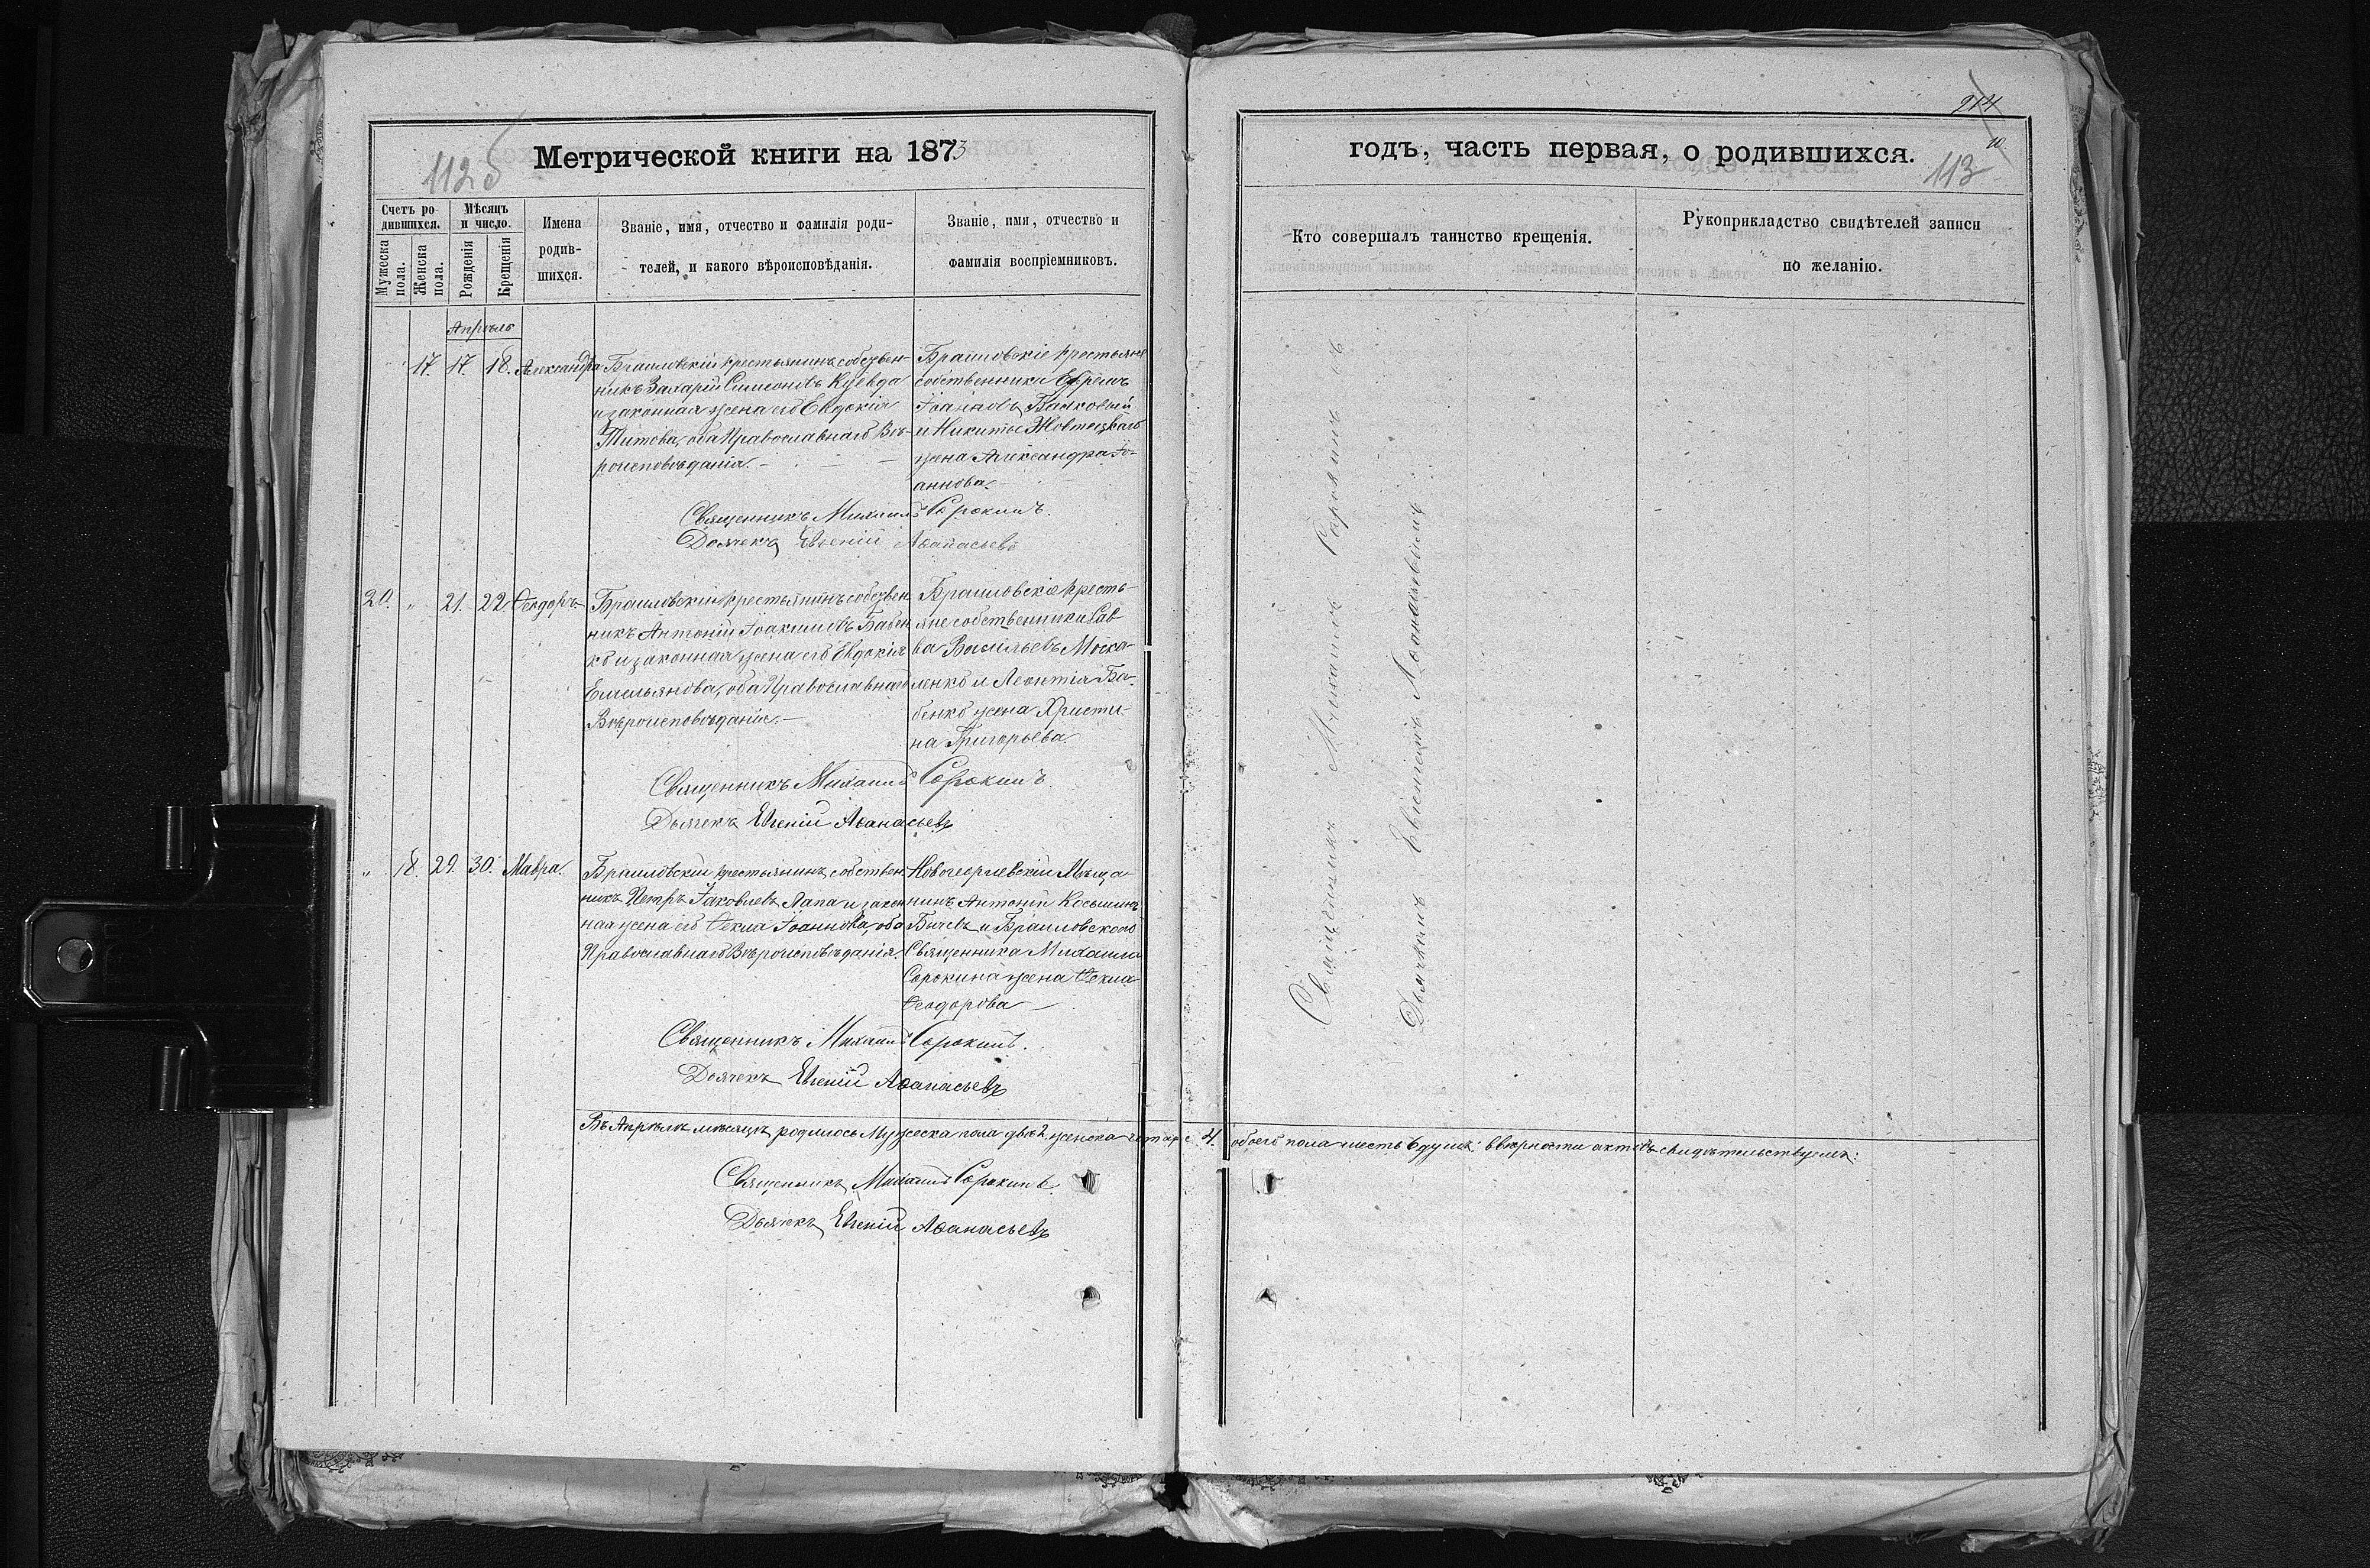 Метрической книги на 1873
112 б
Счетъ родившихся.
Мужеска пола.
Женска пола.
Мѣсяцъ и число.
Рожденія
Крещенія
Имена родившихся.
Званіе, имя, отчество и фамилія родителей, и какого вѣроисповѣданія.
Званіе, имя, отчество и фамилія воспріемниковъ.
Апрѣль
17. 17. 18. Александра
Браиловскій крестьянинъ собствен-
никъ Захарій Симеоновъ
и законная жена его Евдокія
Титова, оба Православнаго Вѣ-
роисповѣданія. –
Браиловскіе крестьяне
собственники Ефремъ
Іоанновъ
и Никиты
жена Александра Іо-
аннова. –
Священникъ Михаилъ Сорокинъ.
Дьячекъ Евгеній Аѳанасьевъ
20. „ 21. 22. Ѳеодоръ
Браиловскій крестьянинъ собствен
никъ Антоній Іоакимовъ Бабен
ко и законная жена его Евдокія
Емельянова, оба Православнаго
Вѣроисповѣданія. –
Браиловскіе кресть-
яне собственники Сав-
ва Васильевъ Моска-
ленко и Леонтія Ба-
бенко жена Христи-
на Григорьева.
Священникъ Михаилъ Сорокинъ.
Дьячекъ Евгеній Аѳанасьевъ
„ 18. 29. 30. Мавра.
Браиловскій крестьянинъ собствен
никъ Петръ Іаковлевъ Лапа и закон
ная жена его Ѳекла Іоаннова, оба
Православнаго Вѣроисповѣданія.
Новогеоргіевскій Мѣща-
нинъ Антоній Косьминъ
Бычевъ и Браиловскаго
Священника Михаила
Сорокина жена Ѳекла
Ѳеодорова –
Священникъ Михаилъ Сорокинъ.
Дьячекъ Евгеній Аѳанасьевъ
Въ Апрѣлѣ мѣсяцѣ родилось Мужеска пола два 2, женска четыре 4. обоего пола шесть 6 душъ: вѣрности актовъ свидѣтельствуемъ:
Священникъ Михаилъ Сорокинъ.
Дьячекъ Евгеній Аѳанасьевъ
214
10.
годъ, часть первая, о родившихся.
113
Кто совершалъ таинство крещенія.
Рукоприкладство свидѣтелей записи по желанію.
Священникъ Михаилъ Сорокинъ съ
Дьячкомъ Евгеніемъ Аѳанасьевымъ